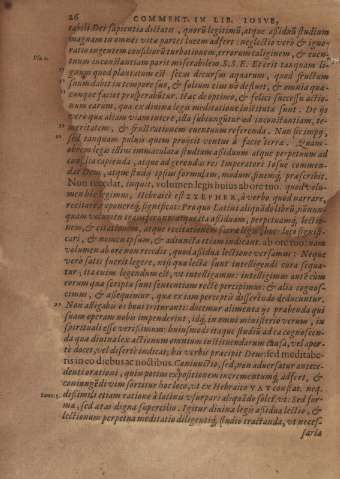 26 COMMENT. IN LIB. IOSVE,
tabili Dei sapientia dictata, quorū legitimū, atque assiduū studium
magnam in omnes vitæ partes lucem adfert: neglectio verò & igno-
ratio ingentem consiliorū turbationem, errorum caliginem, & euen-
tuum inconstantiam parit miserabilem. S. S. E. Et erit tanquam li-
gnum quod plantatum est secus decursus aquarum, quod fructum
suum dabit in tempore suo, & folium eius nō defluet, & omnia quæ-
cunque faciet prosperabūtur. Hæc de optimo, & felici successu actio-
num earum, quæ ex diuina legis meditatione institutæ sunt. De ijs
verò quæ aliam viam inierē, illa subeunguntur ad inconstantiam, te-
meritatem, & frustrationem euentuum referenda. Non sic impij,
sed tanquam puluis quem proijcit ventus à facie terræ. Quam-
obrem legis illius immaculatæ studium assiduum atque perpetuum ad
consilia capienda, atque ad gerendas res Imperatori Iosue commen-
dat Deus, atque studij ipsius formulam, modum, finemq́; præscribit.
Non recedat, inquit, volumen legis huius ab ore tuo. quod volu-
men hîc legimus, Hebraicè est SZEPHER, à verbo quod narrare,
recitare, exponereq́; significat: Proque Latini aliquādo librū, nūnc
quam volumen transferunt: atque ita assiduam, perpetuamq́; lectio-
nem, & citationem, atque recitationem sacræ legis hoc loco signifi-
cari, & nomen ipsum, & adiuncta etiam indicant. ab ore tuo: nam
volumen ab ore non recedit, quod assidua lectione versamur: Neque
verò satis fuerit legere, nisi quæ lecta sunt intelligendi cura sequa-
tur; ita enim legendum est, vt intelligamus: intelligimus autē cùm
eorum quæ scripta sunt sententiam rectè percipimus: & alia cognos-
cimus, & assequimur, quæ ex iam perceptis disserēdo deducuntur.
Non allegabo vt boui trituranti: discemur alimenta ijs præbenda qui
suam operam nobis impenderint, idq́; omni in ministerio verum, in
spirituali esse verissimum: huiusmodi itaque studiū ad ea cognoscen-
da quæ diuina lex actionum omnium instituendarum causa, vel aper-
tè docet, vel disertè indicat, his verbis præcipit Deus: sed meditabe-
ris in eo diebus ac noctibus. Coniunctio, sed, non aduersatur antece-
denti orationi, quin potiùs expositionem incrementumq́; adfert, &
coniungēdi vim sortitur hoc loco, vt ex Hebraico VAV constat. neq́;
dissimili etiam ratione à latinis vsurpari aliquādo solet. vt: Sed for-
ma, sed ætas digna supercilio. Igitur diuinæ legis assidua lectio, &
lectionum perpetua meditatio diligensq́; studio tractanda, vt necess-
saria